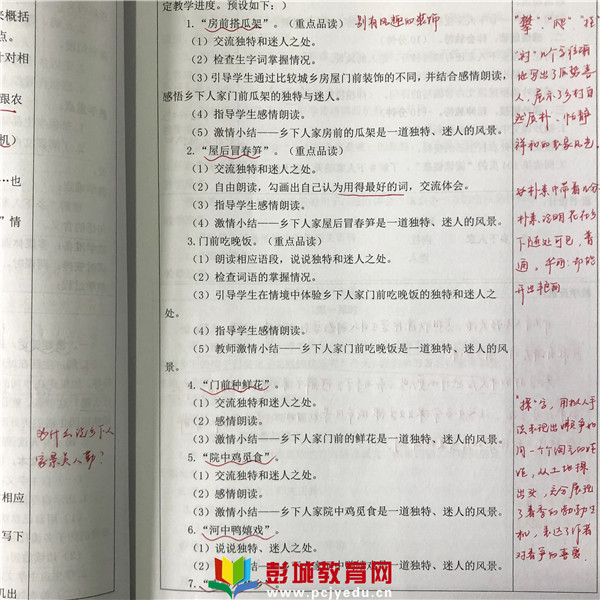 来概括
点。
针对相
跟农
机）
…也
”情
为什么说乡下人
家景美人勤？
相应
写下
机出
定教学进度。预设如下：）
1. “房前搭瓜架”。（重点品读） 别有风趣的装饰
（1）交流独特和迷人之处。
（2）检查生字词掌握情况。
（3）引导学生通过比较城乡房屋门前装饰的不同，并结合感情朗读，
感悟乡下人家门前瓜架的独特与迷人。
（4）指导学生感情朗读。
（5）激情小结——乡下人家房前的瓜架是一道独特、迷人的风景。
2. “屋后冒春笋”。（重点品读）
（1）交流独特和迷人之处。
（2）自由朗读，勾画出自己认为用得最好的词，交流体会。
（3）指导学生感情朗读。
（4）激情小结——乡下人家屋后冒春笋是一道独特、迷人的风景。
3. 门前吃晚饭。（重点品读）
（1）朗读相应语段，说说独特和迷人之处。
（2）检查词语的掌握情况。
（3）引导学生在情境中体验乡下人家门前吃晚饭的独特和迷人之
处。
（4）指导学生感情朗读。
（5）教师激情小结——乡下人家门前吃晚饭是一道独特、迷人的风
景。
4. “门前种鲜花”。
（1）交流独特和迷人之处。
（2）感情朗读。
（3）激情小结——乡下人家门前的鲜花是一道独特、迷人的风景。
5. “院中鸡觅食”。
（1）交流独特和迷人之处。
（2）感情朗读。
（3）激情小结——乡下人家院中鸡觅食是一道独特、迷人的风景。
6. “河中鸭嬉戏”。
（1）说说独特、迷人之处。
（2）激情小结——乡下人家河中鸭嬉戏是一道独特、迷人的风景。
7. “
“攀”“爬”“挂”
人，展示了乡村自
然质朴、恬静
祥和的
朴素，
下随处可见，普
通，
开出艳丽
“探”字，用拟人手
法
，从土地探
出头，充分展现
了春笋的勃勃生
机，表达了作者
对春笋的喜爱
彭城教育网
www.pcjyedu.cn